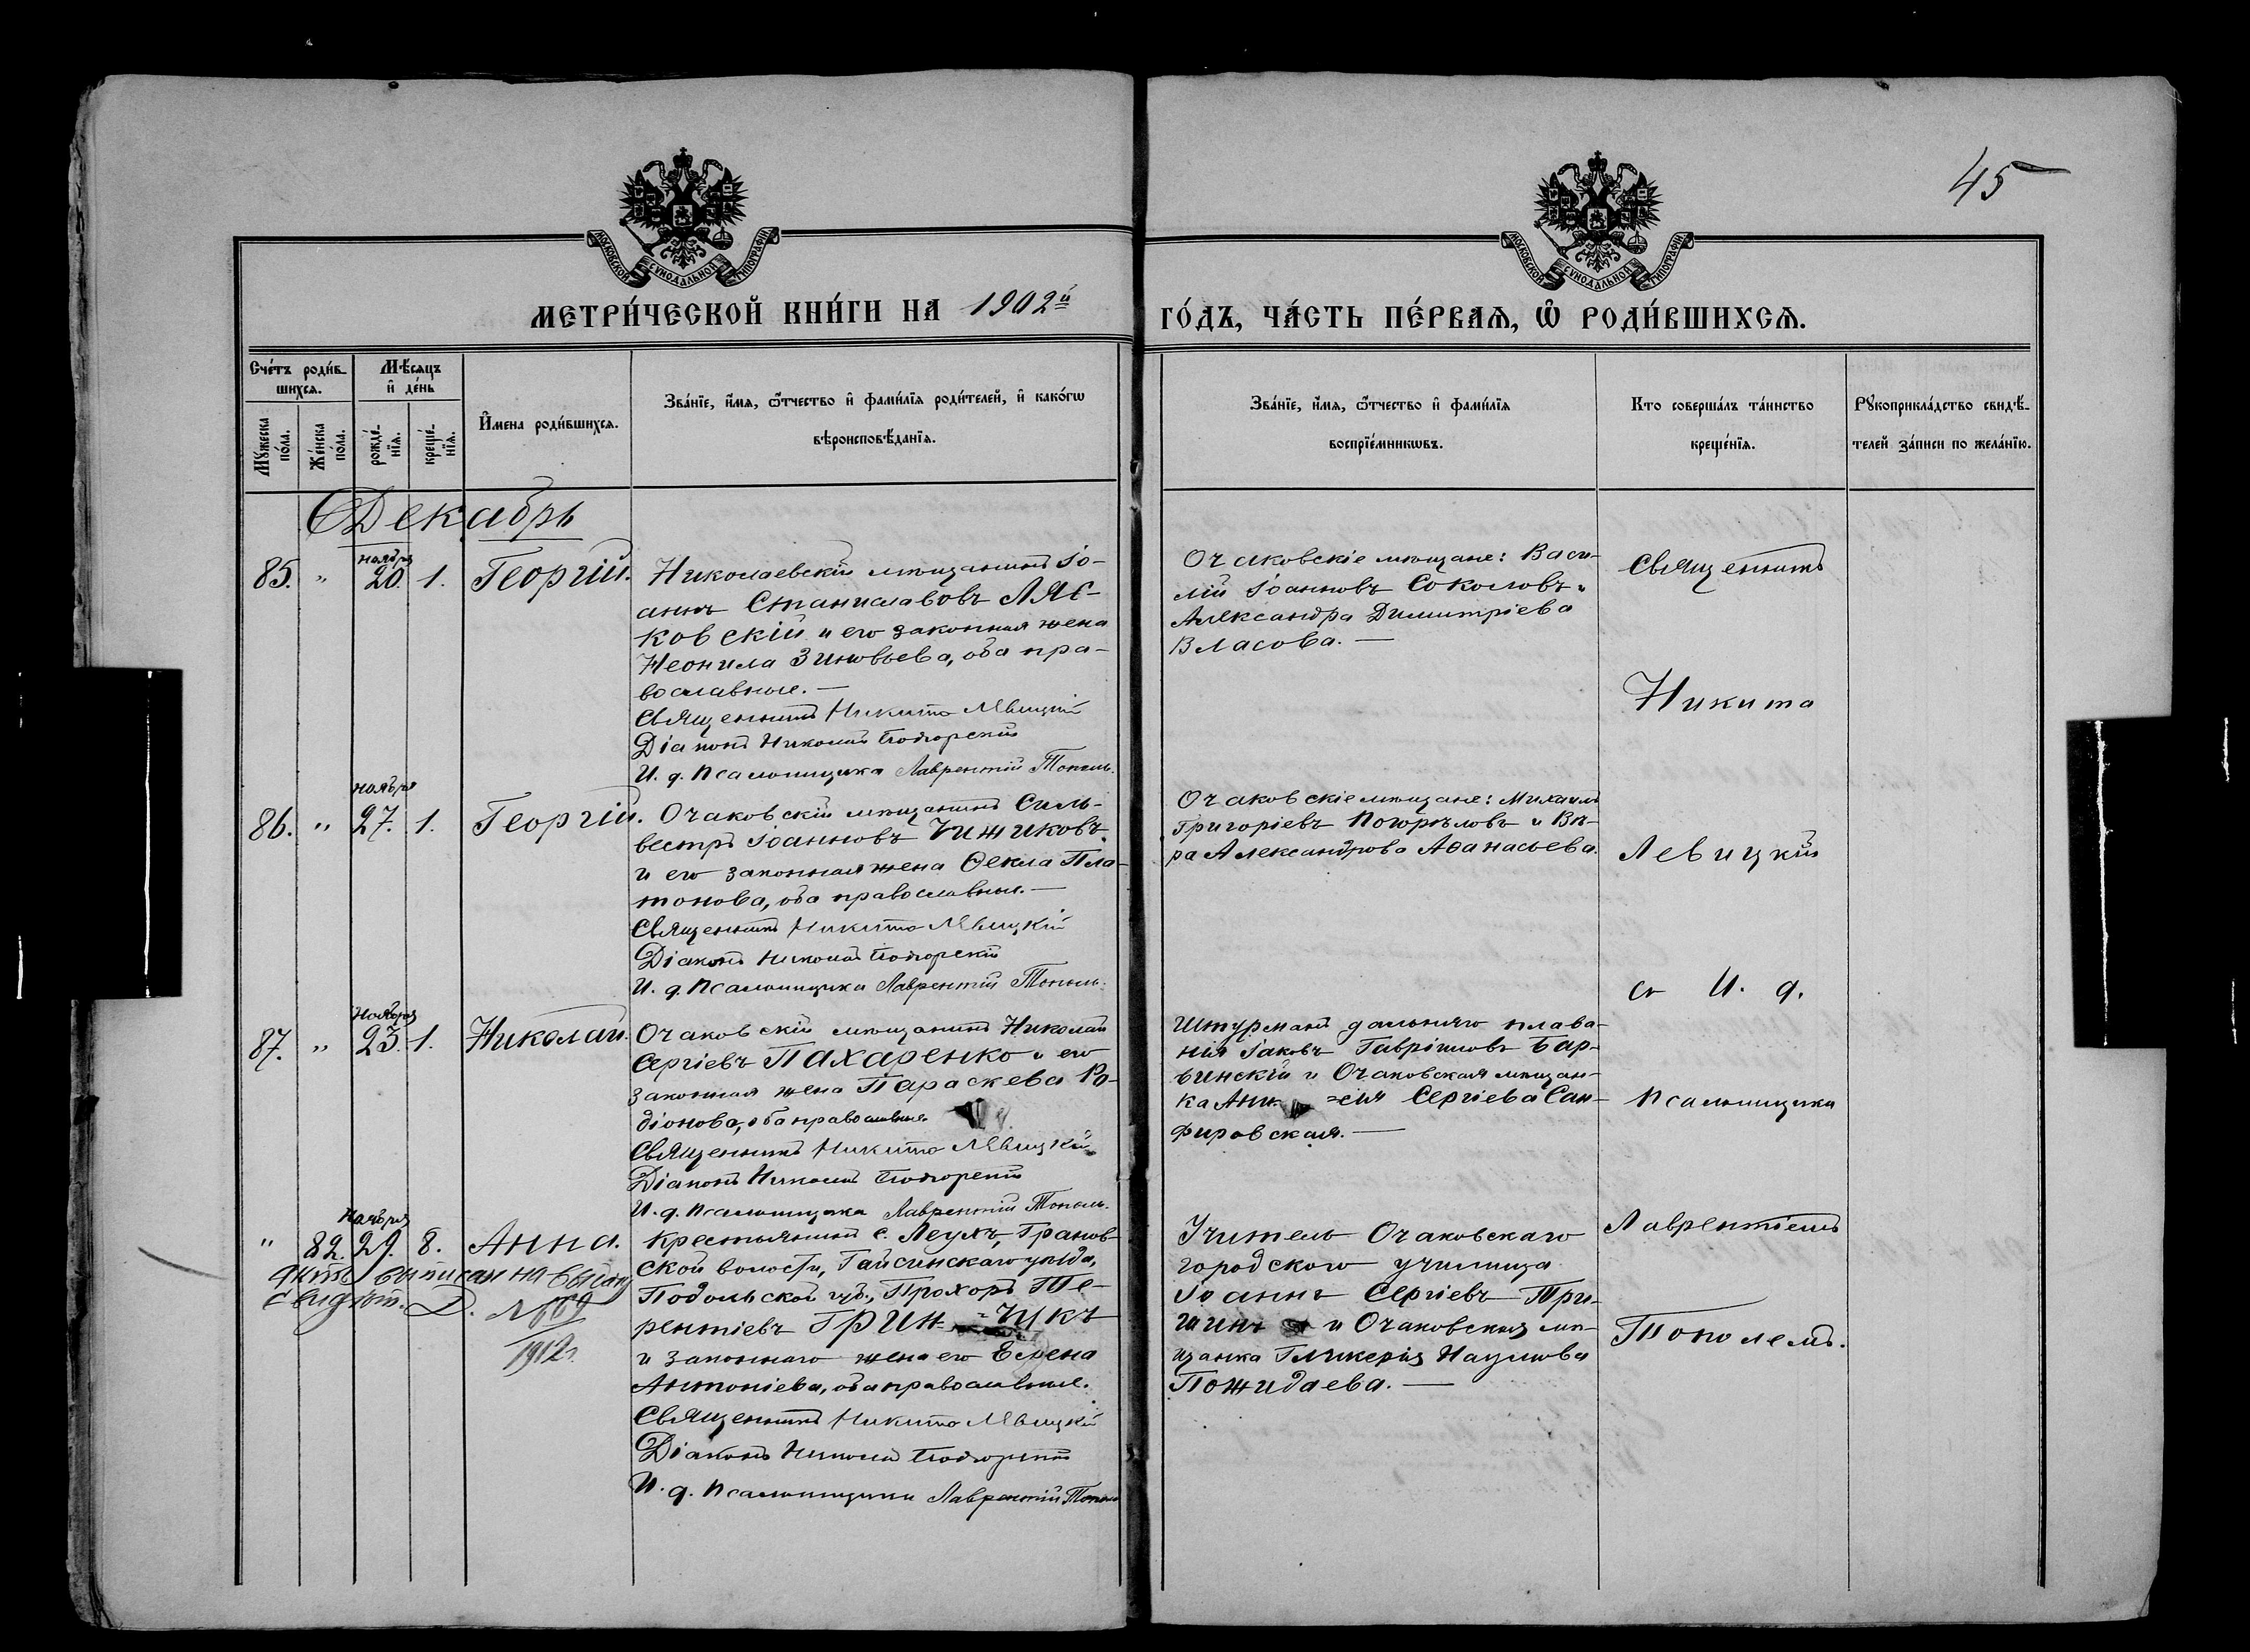 45
МОСКОВСКОЙ СУНОДАЛЬНОЙ ТИПОГРАФІИ
МОСКОВСКОЙ СУНОДАЛЬНОЙ ТИПОГРАФІИ
МЕТРИ́ЧЕСКОЙ КНИ́ГИ НА 1902й
ГО́ДЪ, ЧА́СТЬ ПЕ́РВАѦ, Ѽ РОДИ́ВШИХСѦ.
Сче́тъ роди́в-
шихсѧ.
Мѣ́сѧцъ
и҆ де́нь
Мꙋ́жеска
по́ла.
Же́нска
по́ла.
рожде́-
нїѧ.
креще́-
нїѧ.
И҆мена роди́вшихсѧ.
Зва́нїе, и҆́мѧ, ѻ҆́тчество и҆ фами́лїѧ роди́телей, и҆ како́гѡ
вѣроисповѣ́данїѧ.
Зва́нїе, и҆́мѧ, ѻ҆́тчество и҆ фами́лїѧ
воспрїе́мникѡвъ.
Кто соверша́лъ та́инство
креще́нїѧ.
Рꙋкоприкла́дство свидѣ́-
телей за́писи по жела́нїю.
Декабрь
85. " ноября 20. 1. Георгій.
Николаевскій мѣщанинъ Іо-
аннъ Станиславовъ ЛЯС-
КОВСКІЙ и его законная жена
Неонила Зиновьева, оба пра-
вославные. —
Священникъ Никита Левицкій
Діаконъ Николай Подгорскій
И. д. Псаломщика Лаврентій Тополь.
Очаковскіе мѣщане: Васи-
лій Іоанновъ Соколовъ и
Александра Димитріева
Власова. —
86. " ноября 27. 1. Георгій.
Очаковскій мѣщанинъ Силь-
вестръ Іоанновъ ЧИЖИКОВЪ
и его законная жена Ѳекла Пла-
тонова, оба православные. —
Священникъ Никита Левицкій
Діаконъ Николай Подгорскій
И. д. Псаломщика Лаврентій Тополь.
Очаковскіе мѣщане: Михаилъ
Григоріевъ Погорѣловъ и Вѣ-
ра Александрова Аѳанасьева.
87. " Ноября 23. 1. Николай.
Очаковскій мѣщанинъ Николай
Сергіевъ ПАХАРЕНКО и его
законная жена Параскева Ро-
діонова, оба православные.
Священникъ Никита Левицкій
Діаконъ Николай Подгорскій
И. д. Псаломщика Лаврентій Тополь.
Штурманъ дальняго плава-
нія Іаковъ Гавріиловъ Бар-
винскій и Очаковская мѣщан-
ка =сія Сергіева Сан-
фировская. —
" 82. Ноября 29. 8. Анна.
выписан на
свидѣт.
1912 г.
Крестьянинъ с. Леухъ, Гранов-
ской волости, Гайсинскаго уѣзда,
Подольской губ., Прохоръ Те-
рентіевъ ГРИН=ЧУКЪ
и законная жена его Елена
Антоніева, оба православные.
Священникъ Никита Левицкій
Діаконъ Николай Подгорскій
И. д. Псаломщика Лаврентій Тополь
Учитель Очаковскаго
городского училища
Іоаннъ Сергіевъ Три-
шинъ и Очаковская мѣ-
щанка Гликерія Наумова
Пожидаева. —
Священникъ
Никита
Левицкій
съ И. д.
Псаломщика
Лаврентіемъ
Тополемъ.